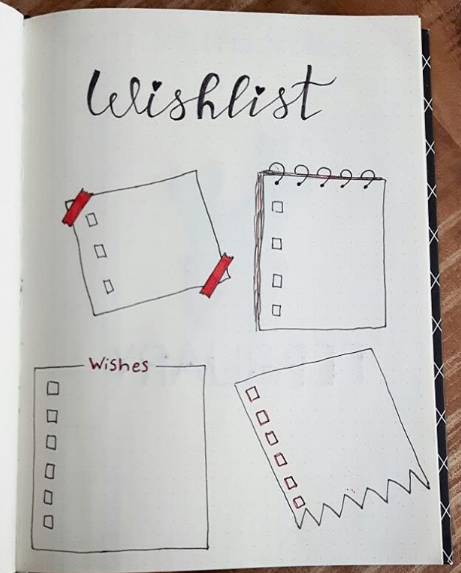 Wishlist
Wishes